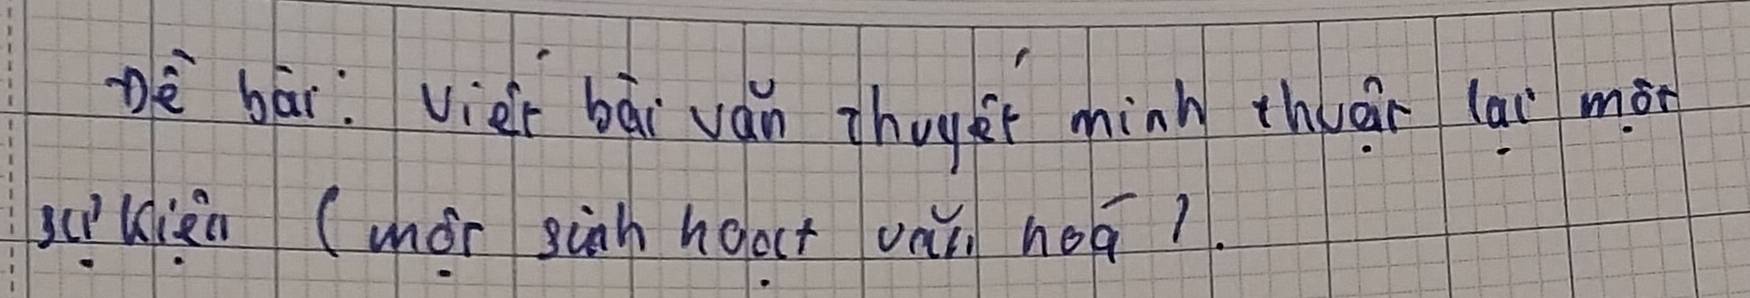 Đề bài: Viết bài văn thuyết minh thuật lại một
sự kiện (một sinh hoạt văn hoá).